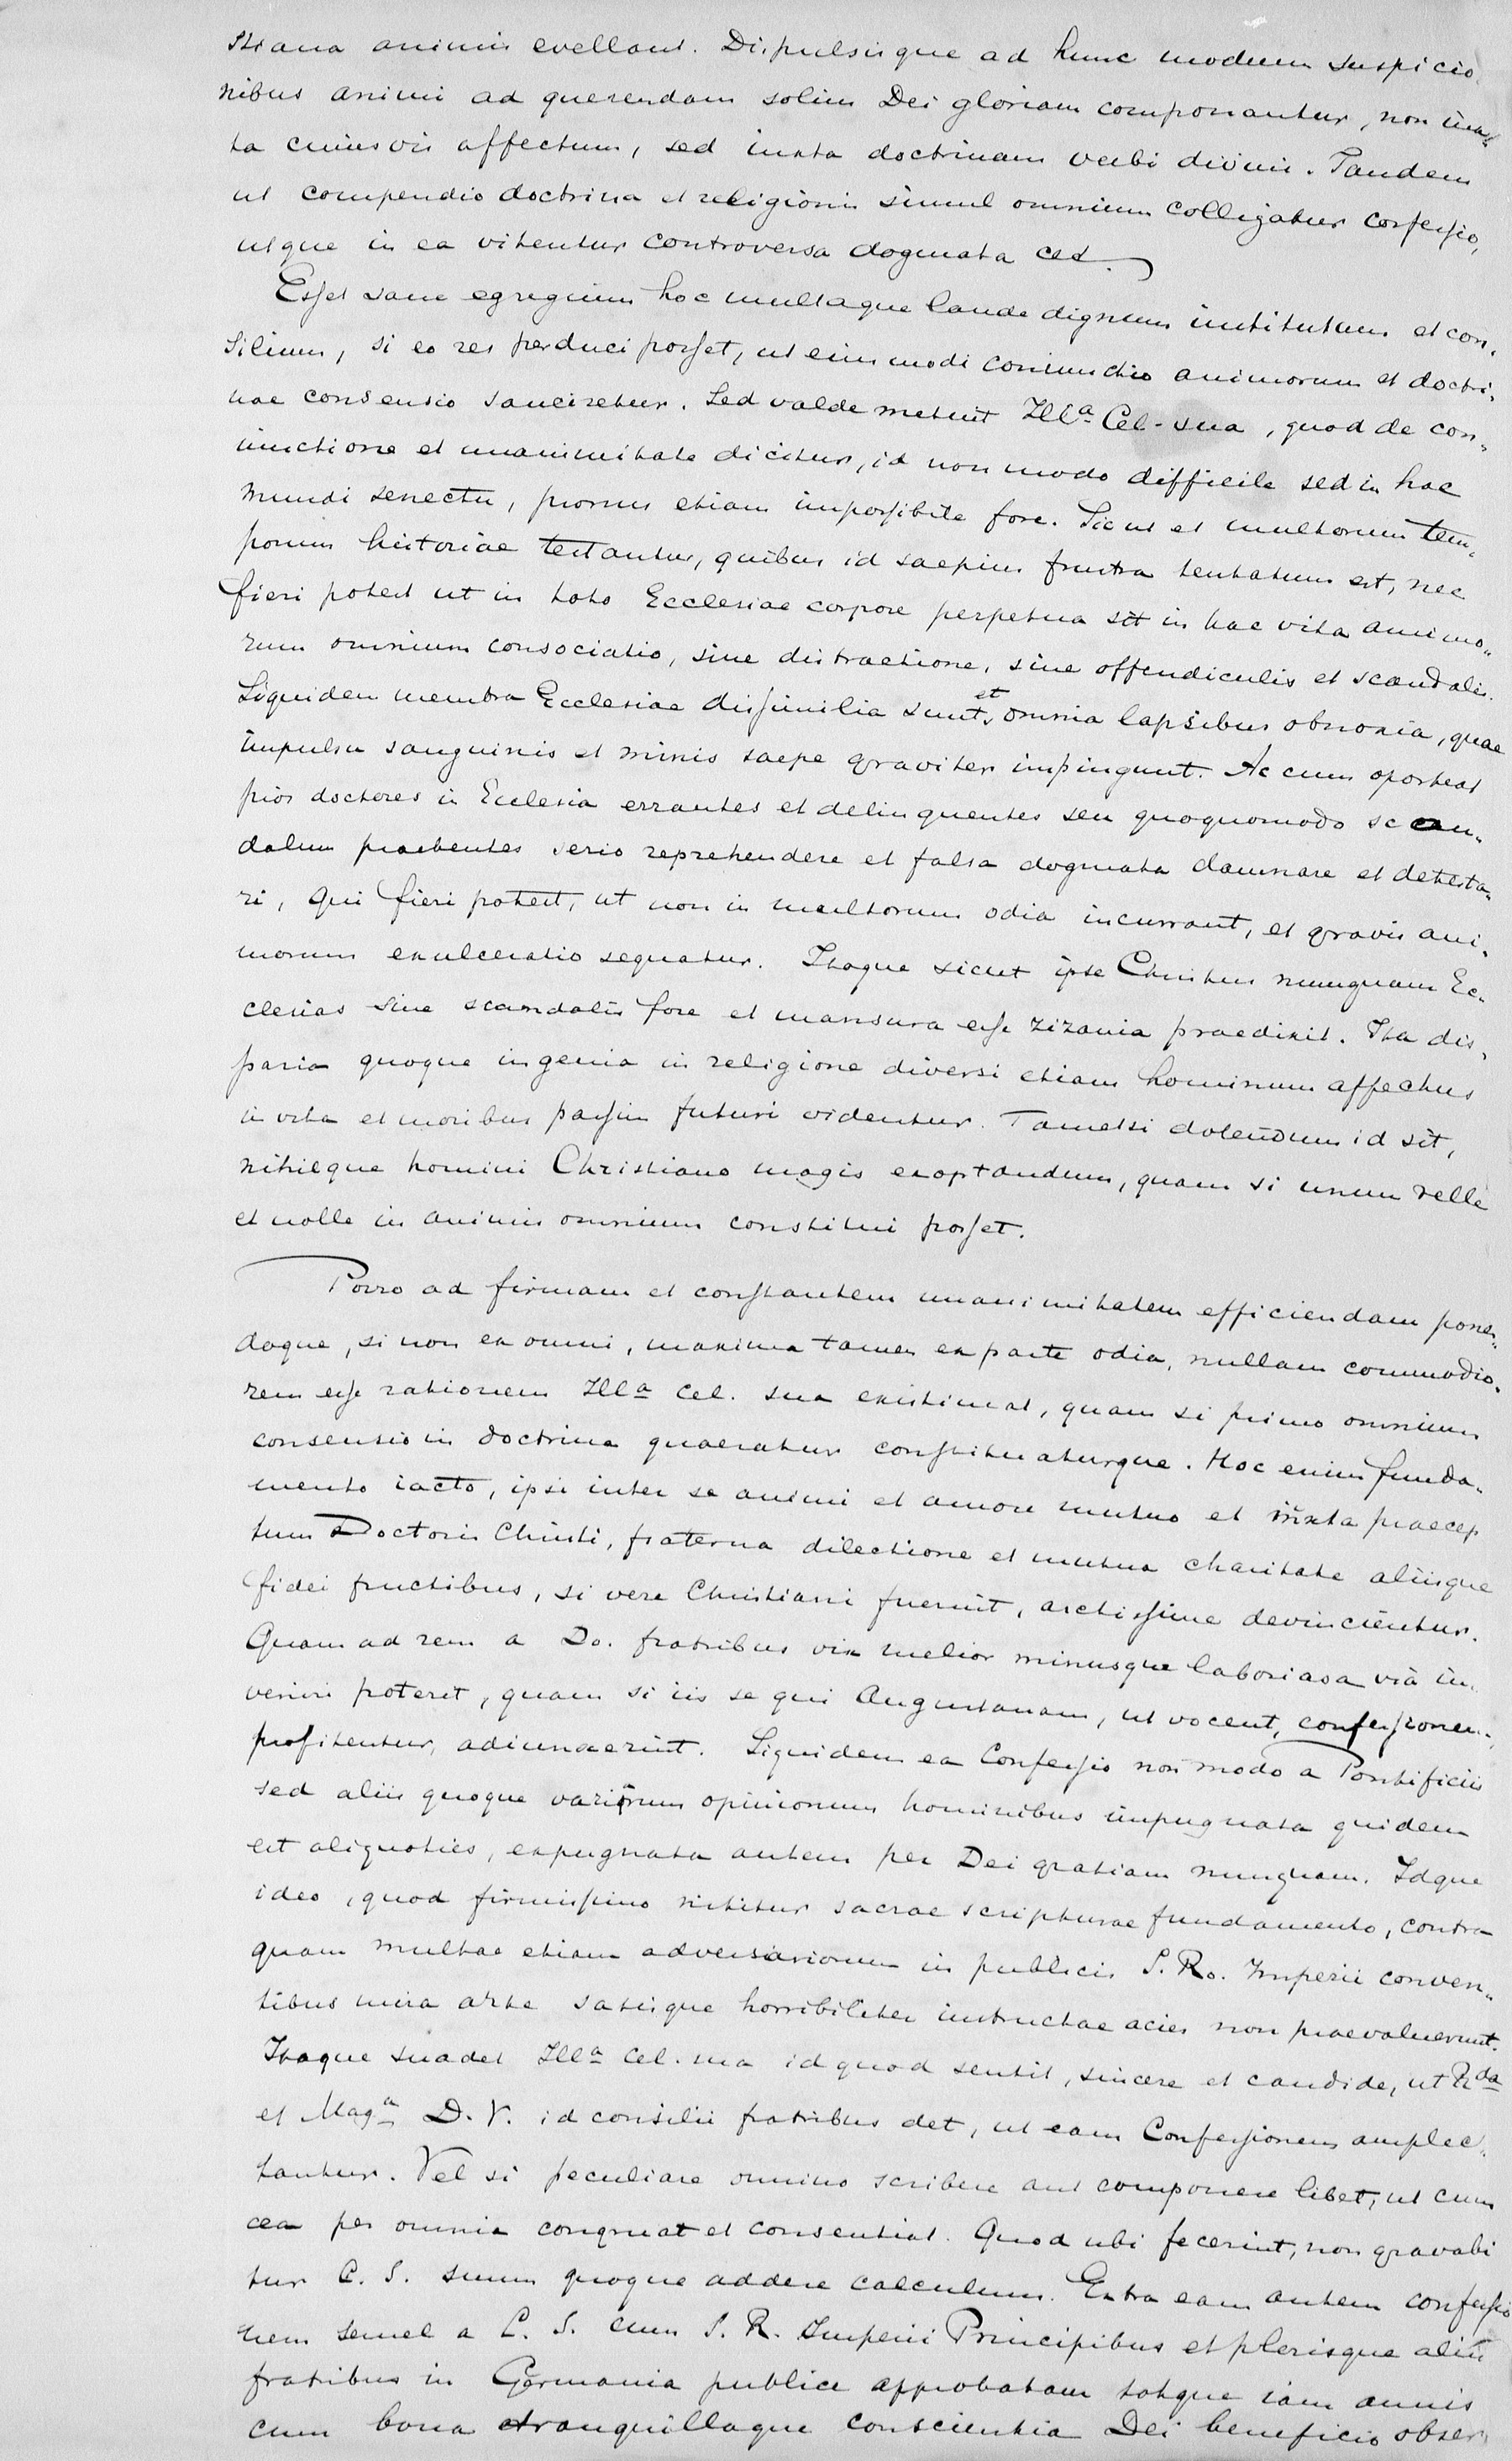 stiana animis evellant. Dispulsisque ad hunc modum suspicio
nibus animi ad querendam solius Dei gloriam componantur, non iux
ta cuiusvis affectum, sed iuxta doctrinam verbi divini. Tandem
ut compendio doctrina et religionis simul omnium colligatur confessio,
utque in ea vitentur controversa dogmata cet.
Esset sane egregium hoc multaque laude dignum institutum et con„
silium, si eo res perduci posset, ut eiusmodi coniunctio animorum et doctri„
nae consensio sanciretur. Sed valde metuit Illa Cel. sua, quod de con„
iunctione et unanimitate dicitur, id non modo difficile sed in hac
mundi senectu, prorsus etiam impossibile fore. Sicut et multorum tem„
porum historiae testantur, quibus id saepius frustra tentatum est, nec
fieri potest ut in toto Ecclesiae corpore perpetua sit in hac vita animo„
rum omnium consociatio, sine distractione, sine offendiculis et scandalis.
Siquidem membra Ecclesiae dissimilia sunt, et omnia lapsibus obnoxia, quae
impulsu sanguinis et minis saepe graviter impingunt. Ac cum oporteat
pios doctores in Ecclesia errantes et delinquentes seu quoquomodo scan„
dalum praebentes serio reprehendere et falsa dogmata damnare et detesta„
ri, qui fieri potest, ut non in multorum odia incurrant, et gravis ani„
morum exulceratio sequatur. Itaque sicut ipse Christus nunquam Ec„
clesias sine scandalis fore et mansura esse zizania praedixit. Ita dis„
paria quoque ingenia in religione diversi etiam hominum affectus
in vita et moribus passim futuri videntur. Tametsi dolendum id sit,
nihilque homini Christiano magis exoptandum, quam si unum velle
et nolle in animis omnium constitui posset.
Porro ad firmam et constantem unanimitatem efficiendam ponen„
daque, si non ex omni, maxima tamen ex parte odia, nullam commodio„
rem esse rationem Illa Cel. sua existimat, quam si primo omnium
consensio in doctrina quaeratur constituaturque. Hoc enim funda„
mento iacto, ipsi inter se animi et amore mutuo et iuxta praecep
tum Doctoris Christi, fraterna dilectione et mutua charitate aliisque
fidei fructibus, si vere Christiani fuerint, arctissime devincientur.
Quam ad rem a Do. fratribus vix melior minusque laboriosa via in„
veniri poterit, quam si iis se qui Augustanam, ut vocent, confessionem„
profitentur, adiunxerint. Siquidem ea Confessio non modo a Pontificiis
sed aliis quoque variorum opinionum hominibus impugnata quidem
est aliquoties, expugnata autem per Dei gratiam nunquam. Idque
ideo, quod firmissimo nititur sacrae scripturae fundamento, contra
quam multae etiam adversariorum in publicis S. Ro. Imperii conven„
tibus mira arte satisque horribiliter instructae acies non praevaluerunt.
Itaque suadet Illa Cel. sua id quod sentit, sincere et candide, ut Rda
et Maga D. V. id consilii fratribus det, ut eam Confessionem amplec„
tantur. Vel si peculiare omnino scribere aut componere libet, ut cum
cea per omnia congruat et consentiat. Quod ubi fecerint, non gravabi
tur C. S. suum quoque addere calculum. Extra eam autem confessio
nem semel a C. S. cum S. R. Imperii Principibus et plerisque aliis
fratribus in Germania publice approbatam totque iam annis
cum bona tranquillaque conscientia Dei beneficio obser„